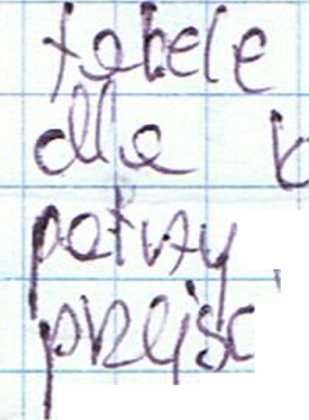 tabele
dla
patrzy
przejść